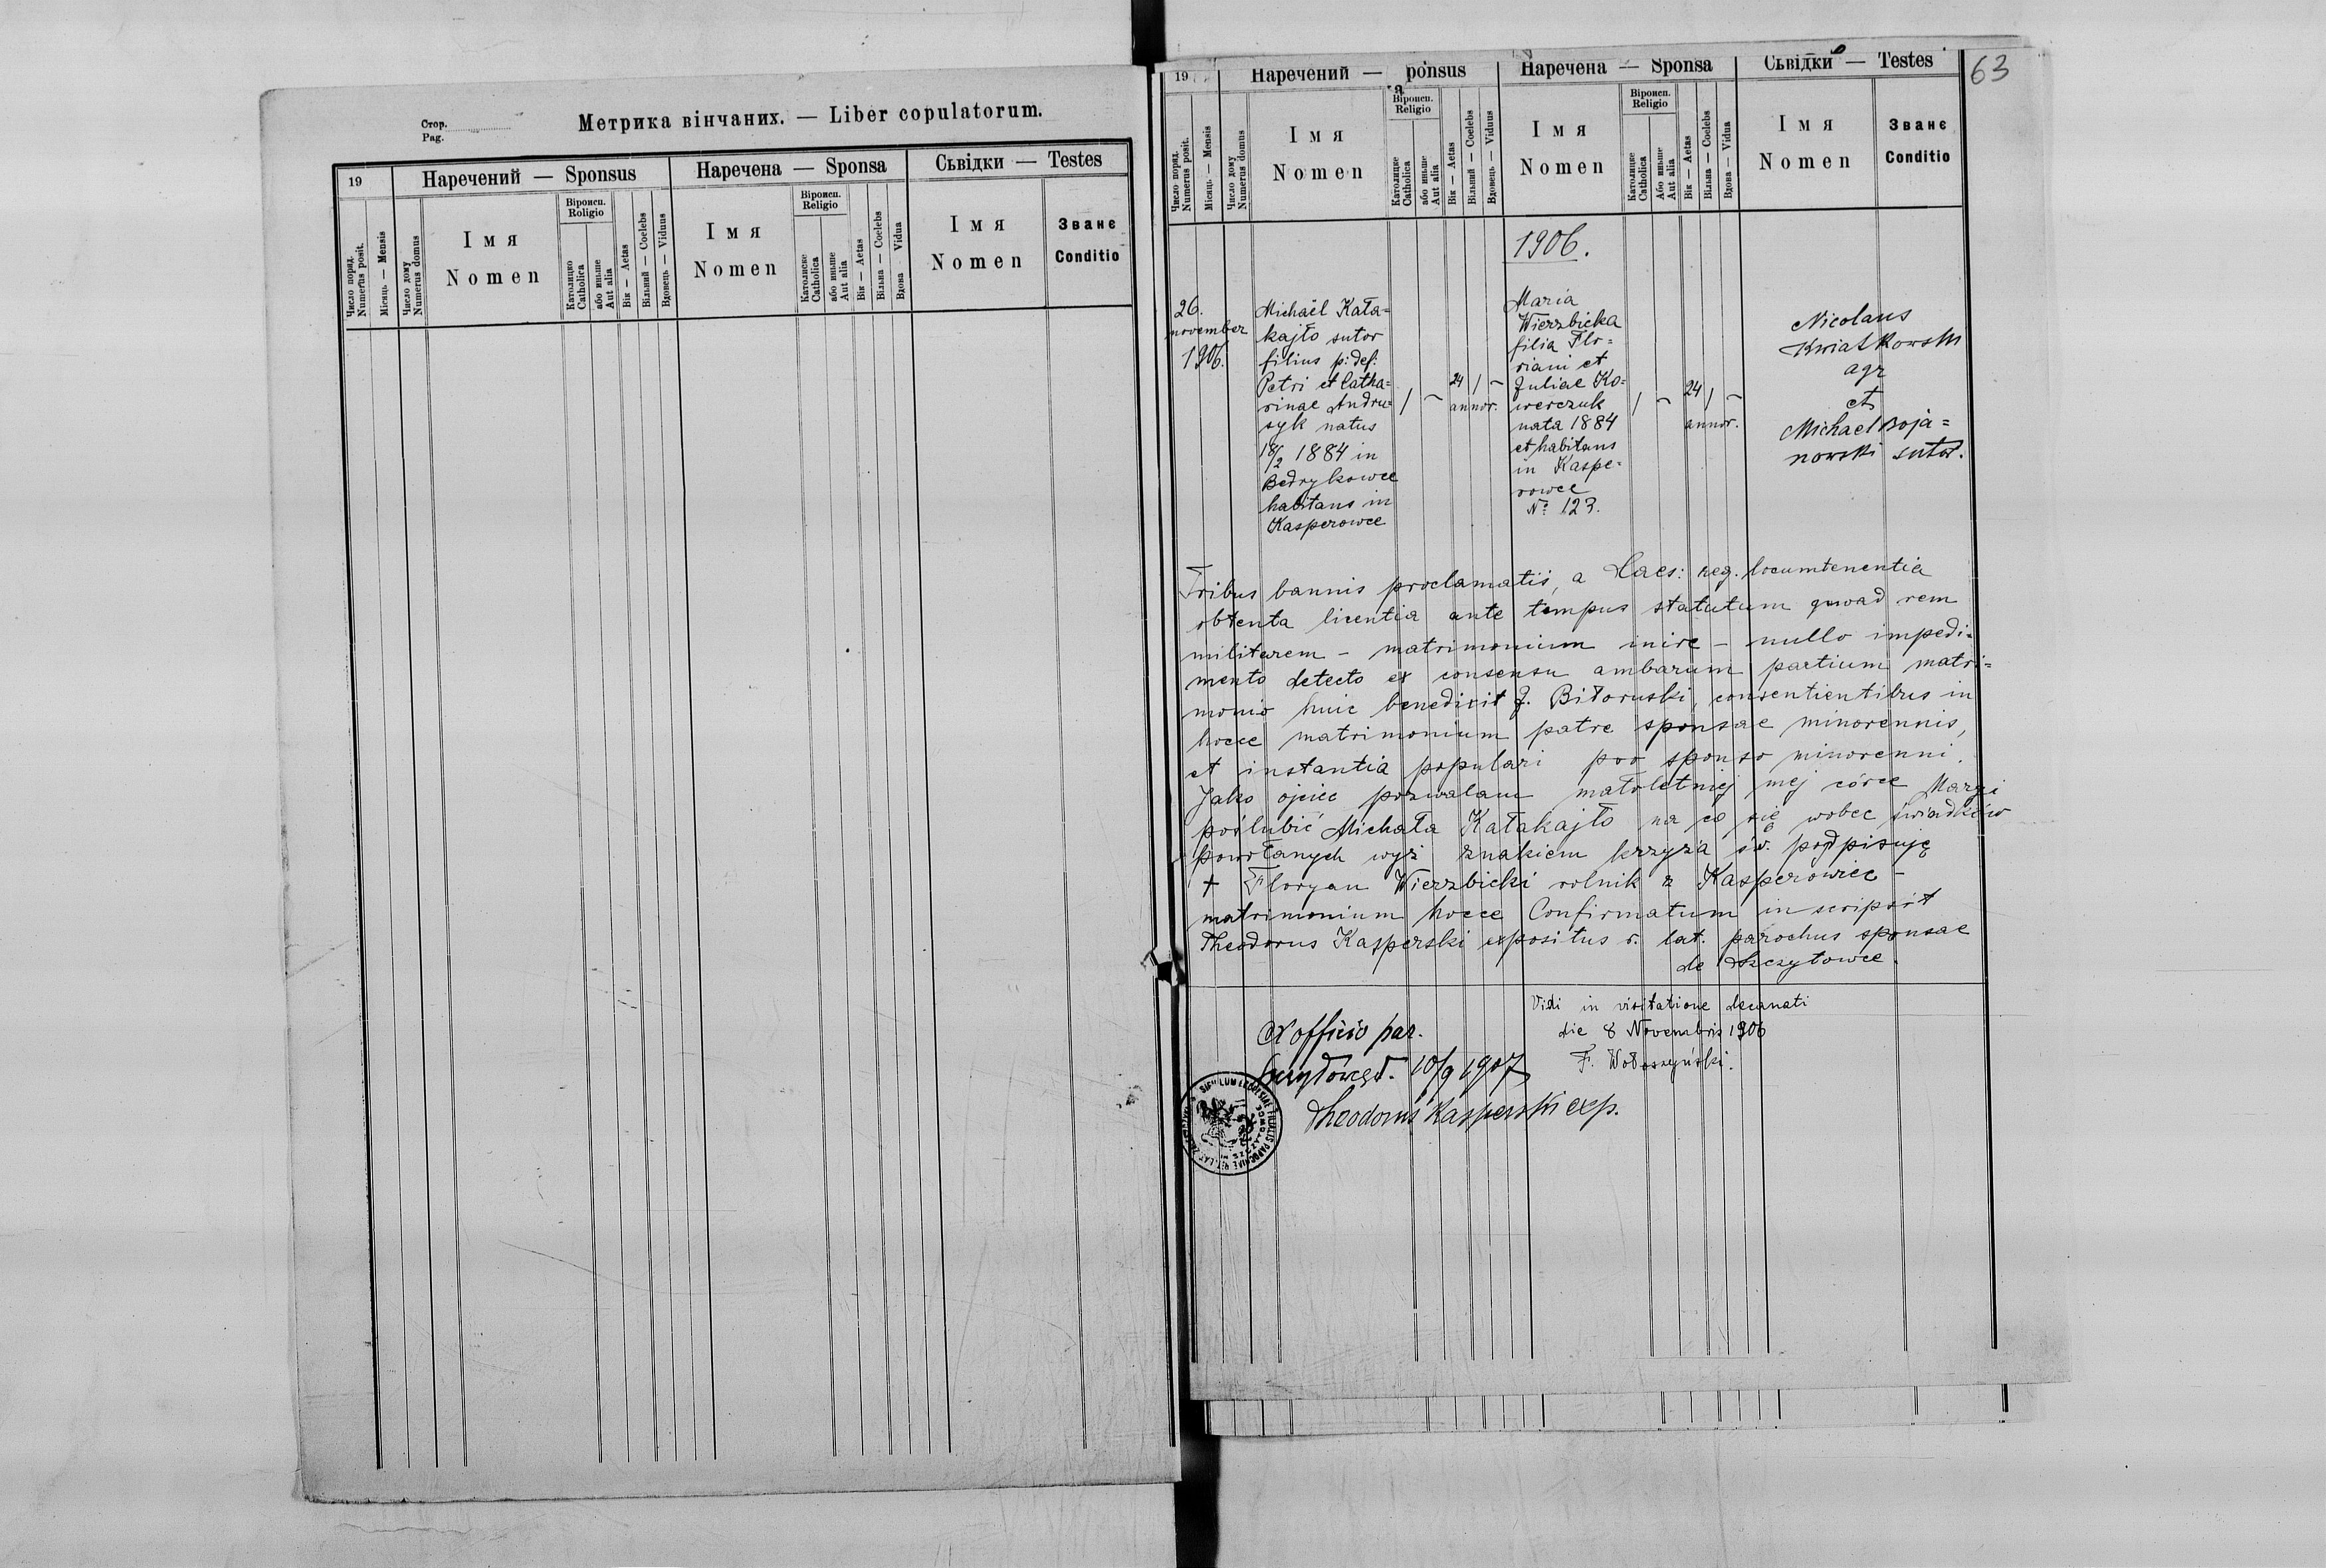 Стор.
Pag.
Метрика вінчаних. — Liber copulatorum.
19
Наречений — Sponsus
Наречена — Sponsa
Сьвідки — Testes
Число поряд.
Numerus posit.
Місяць — Mensis
Число дому
Numerus domus
Імя
Nomen
Віроисп.
Religio
Католицке
Catholica
або иньше
Aut alia
Вік — Aetas
Вільний — Coelebs
Вдовець — Viduus
Імя
Nomen
Віроисп.
Religio
Католиске
Catholica
або иньше
Aut alia
Вік — Aetas
Вільна — Coelebs
Вдова — Vidua
Імя
Nomen
Званє
Conditio
63
19
Наречений — ponsus
Наречена — Sponsa
Сьвідки — Testes
Число поряд.
Numerus posit.
Місяць — Mensis
Число дому
Numerus domus
Імя
Nomen
Віроисп.
Religio
Католицке
Catholica
або иньше
Aut alia
Вік — Aetas
Вільний — Coelebs
Вдовець — Viduus
Імя
Nomen
Віроисп.
Religio
Католицке
Catholica
Або иньше
Aut alia
Вік — Aetas
Вільна — Coelebs
Вдова — Vidua
Імя
Nomen
Званє
Conditio
1906.
26.
november
1906.
Michaël Kała=
kajło sutor
filius p: def:
Petri et Catha=
rinae Andru=
syk natus
18/2 1884 in
Bedrykowce
habitans in
Kasperowce
24
annor.
Maria
Wierzbicka
filia Flo=
riani et
Juliae Ko=
werczuk
nata 1884
et habitans
in Kaspe=
rowce
No 123.
24
annor.
Nicolaus
Kwiatkowski
agr
et
Michael Boja=
nowski sutor.
Tribus bannis proclamatis, a Caes: reg. locumtenentia
obtenta licentia ante tempus statutum quoad rem
militarem - matrimonium inire - nullo impedi=
mento detecto ex consensu ambarum partium matri=
monio huic benedixit J. Biłoruski, consentientibus in
hocce matrimonium patre sponsae minorennis,
et instantia pupulari pro sponso minorenni.
Jako ojciec pozwalam małoletniej mej córce Maryi
poślubić Michała Kałakajło na co się wobec świadków
powołanych wyż znakiem krzyża św. podpisuję
+ Floryan Wierzbicki rolnik z Kasperowiec -
matrimonium hocce Confirmatum inscripsit
Theodorus Kasperski expositus r. lat. parochus sponsae
de Szczytowce.
Vidi in visitatione decanati
die 8 Novembris 1906
F. Wołoszyński.
Ex officio par.
10/9 1907
Theodorus Kasperski exp.